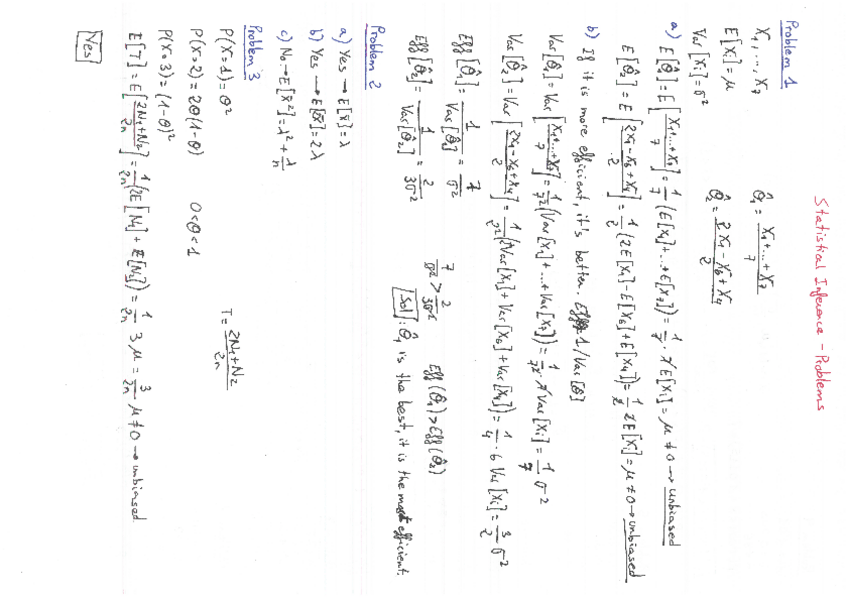 Statistical Inference - Problems
Problem 1
X₁, ..., X₇ θ̂₁ = (X₁+...+X₇)/7
E[Xi] = μ θ̂₂ = (2X₁ - X₆ + X₄)/2
Var[Xi] = σ²
a) E[θ̂] = E[(X₁+...+X₇)/7] = 1/7 (E[X₁]+...+E[X₇]) = 1/7 · 7 E[Xi] = μ ≠ 0 → unbiased
E[θ̂₂] = E[(2X₁ - X₆ + X₄)/2] = 1/2 (2E[X₁] - E[X₆] + E[X₄]) = 1/2 2E[Xi] = μ ≠ 0 → unbiased
b) If it is more efficient, it's better. 1/Var[θ]
Var[θ̂₁] = Var[(X₁+...+X₇)/7] = 1/7² (Var[X₁]+...+Var[X₇]) = 1/7² · 7 Var[Xi] = 1/7 σ²
Var[θ̂₂] = Var[(2X₁ - X₆ + X₄)/2] = 1/2² (2²Var[X₁] + Var[X₆] + Var[X₄]) = 1/4 · 6 Var[Xi] = 3/2 σ²
Eff[θ̂₁] = 1/Var[θ̂₁] = 7/σ² 7/σ² > 2/3σ² Eff(θ̂₁) > Eff(θ̂₂)
Eff[θ̂₂] = 1/Var[θ̂₂] = 2/3σ² Sol: θ̂₁ is the best, it is the most efficient.
Problem 2
a) Yes → E[x̄] = λ
b) Yes → E[x̄] = 2λ
c) No → E[x̄²] = λ² + 1/n
Problem 3
P(X=1) = θ² T = (2N₁+N₂)/2n
P(X=2) = 2θ(1-θ) 0<θ<1
P(X=3) = (1-θ)²
E[T] = E[(2N₁+N₂)/2n] = 1/2n (2E[N₁] + E[N₂]) = 1/2n 3μ = 3/2n μ ≠ 0 → unbiased
Yes